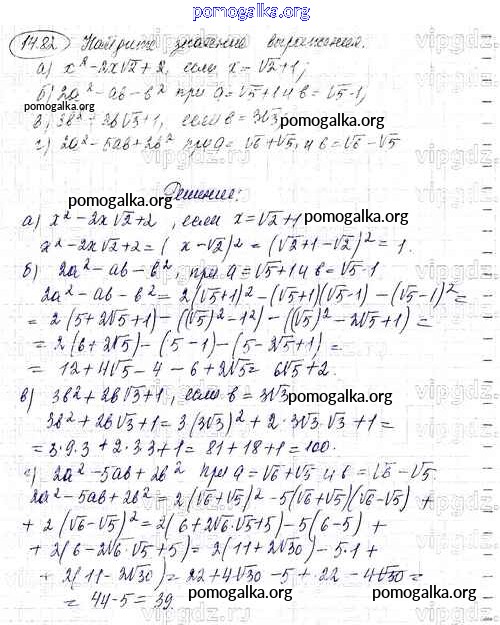 pomogalka.org
14.82 Найдите значение выражения.
а) x² - 2x√2 + 2, если x = √2 + 1;
pomogalka.org
б) 2a² - ab - b² при a = √5 + 1 и b = √5 - 1;
в) 3b² + 2b√3 + 1, если b = 3√3;
pomogalka.org
г) 2a² - 5ab + 2b² при a = √6 + √5 и b = √6 - √5
Решение:
pomogalka.org
pomogalka.org
а) x² - 2x√2 + 2, если x = √2 + 1
x² - 2x√2 + 2 = (x - √2)² = (√2 + 1 - √2)² = 1.
б) 2a² - ab - b², при a = √5 + 1 и b = √5 - 1
2a² - ab - b² = 2(√5 + 1)² - (√5 + 1)(√5 - 1) - (√5 - 1)² =
= 2(5 + 2√5 + 1) - ((√5)² - 1²) - ((√5)² - 2√5 + 1) =
= 2(6 + 2√5) - (5 - 1) - (5 - 2√5 + 1) =
pomogalka.org
= 12 + 4√5 - 4 - 6 + 2√5 = 6√5 + 2.
в) 3b² + 2b√3 + 1, если b = 3√3
pomogalka.org
3b² + 2b√3 + 1 = 3(3√3)² + 2·3√3·√3 + 1 =
= 3·9·3 + 2·3·3 + 1 = 81 + 18 + 1 = 100.
pomogalka.org
г) 2a² - 5ab + 2b² при a = √6 + √5 и b = √6 - √5.
2a² - 5ab + 2b² = 2(√6 + √5)² - 5(√6 + √5)(√6 - √5) +
+ 2(√6 - √5)² = 2(6 + 2√6·√5 + 5) - 5(6 - 5) +
+ 2(6 - 2√6·√5 + 5) = 2(11 + 2√30) - 5·1 +
+ 2(11 - 2√30) = 22 + 4√30 - 5 + 22 - 4√30 =
= 44 - 5 = 39
pomogalka.org
pomogalka.org
vipgdz.ru